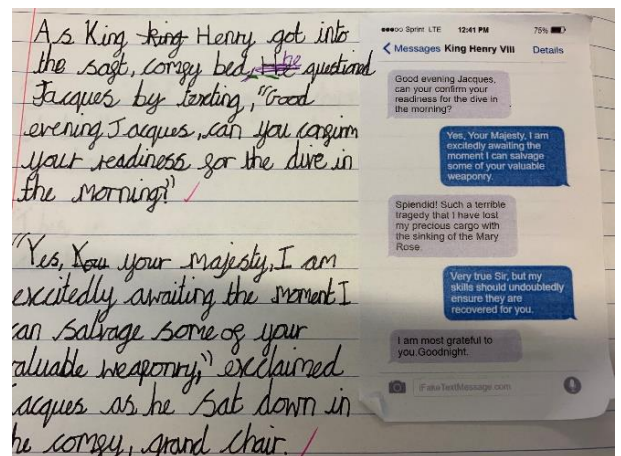 As King king Henry got into
the soft, comfy bed, he questioned
Jacques by texting, "Good
evening Jacques, can you confirm
your readiness for the dive in
the morning?"
"Yes, You your majesty, I am
excitedly awaiting the moment I
can salvage some of your
valuable weaponry," exclaimed
Jacques as he sat down in
the comfy, grand chair.
Sprint LTE 12:41 PM 75%
Messages King Henry VIII Details
Good evening Jacques,
can your confirm your
readiness for the dive in
the morning?
Yes, Your Majesty, I am
excitedly awaiting the
moment I can salvage
some of your valuable
weaponry.
Splendid! Such a terrible
tragedy that I have lost
my precious cargo with
the sinking of the Mary
Rose.
Very true Sir, but my
skills should undoubtedly
ensure they are
recovered for you.
I am most grateful to
you.Goodnight.
iFakeTextMessage.com